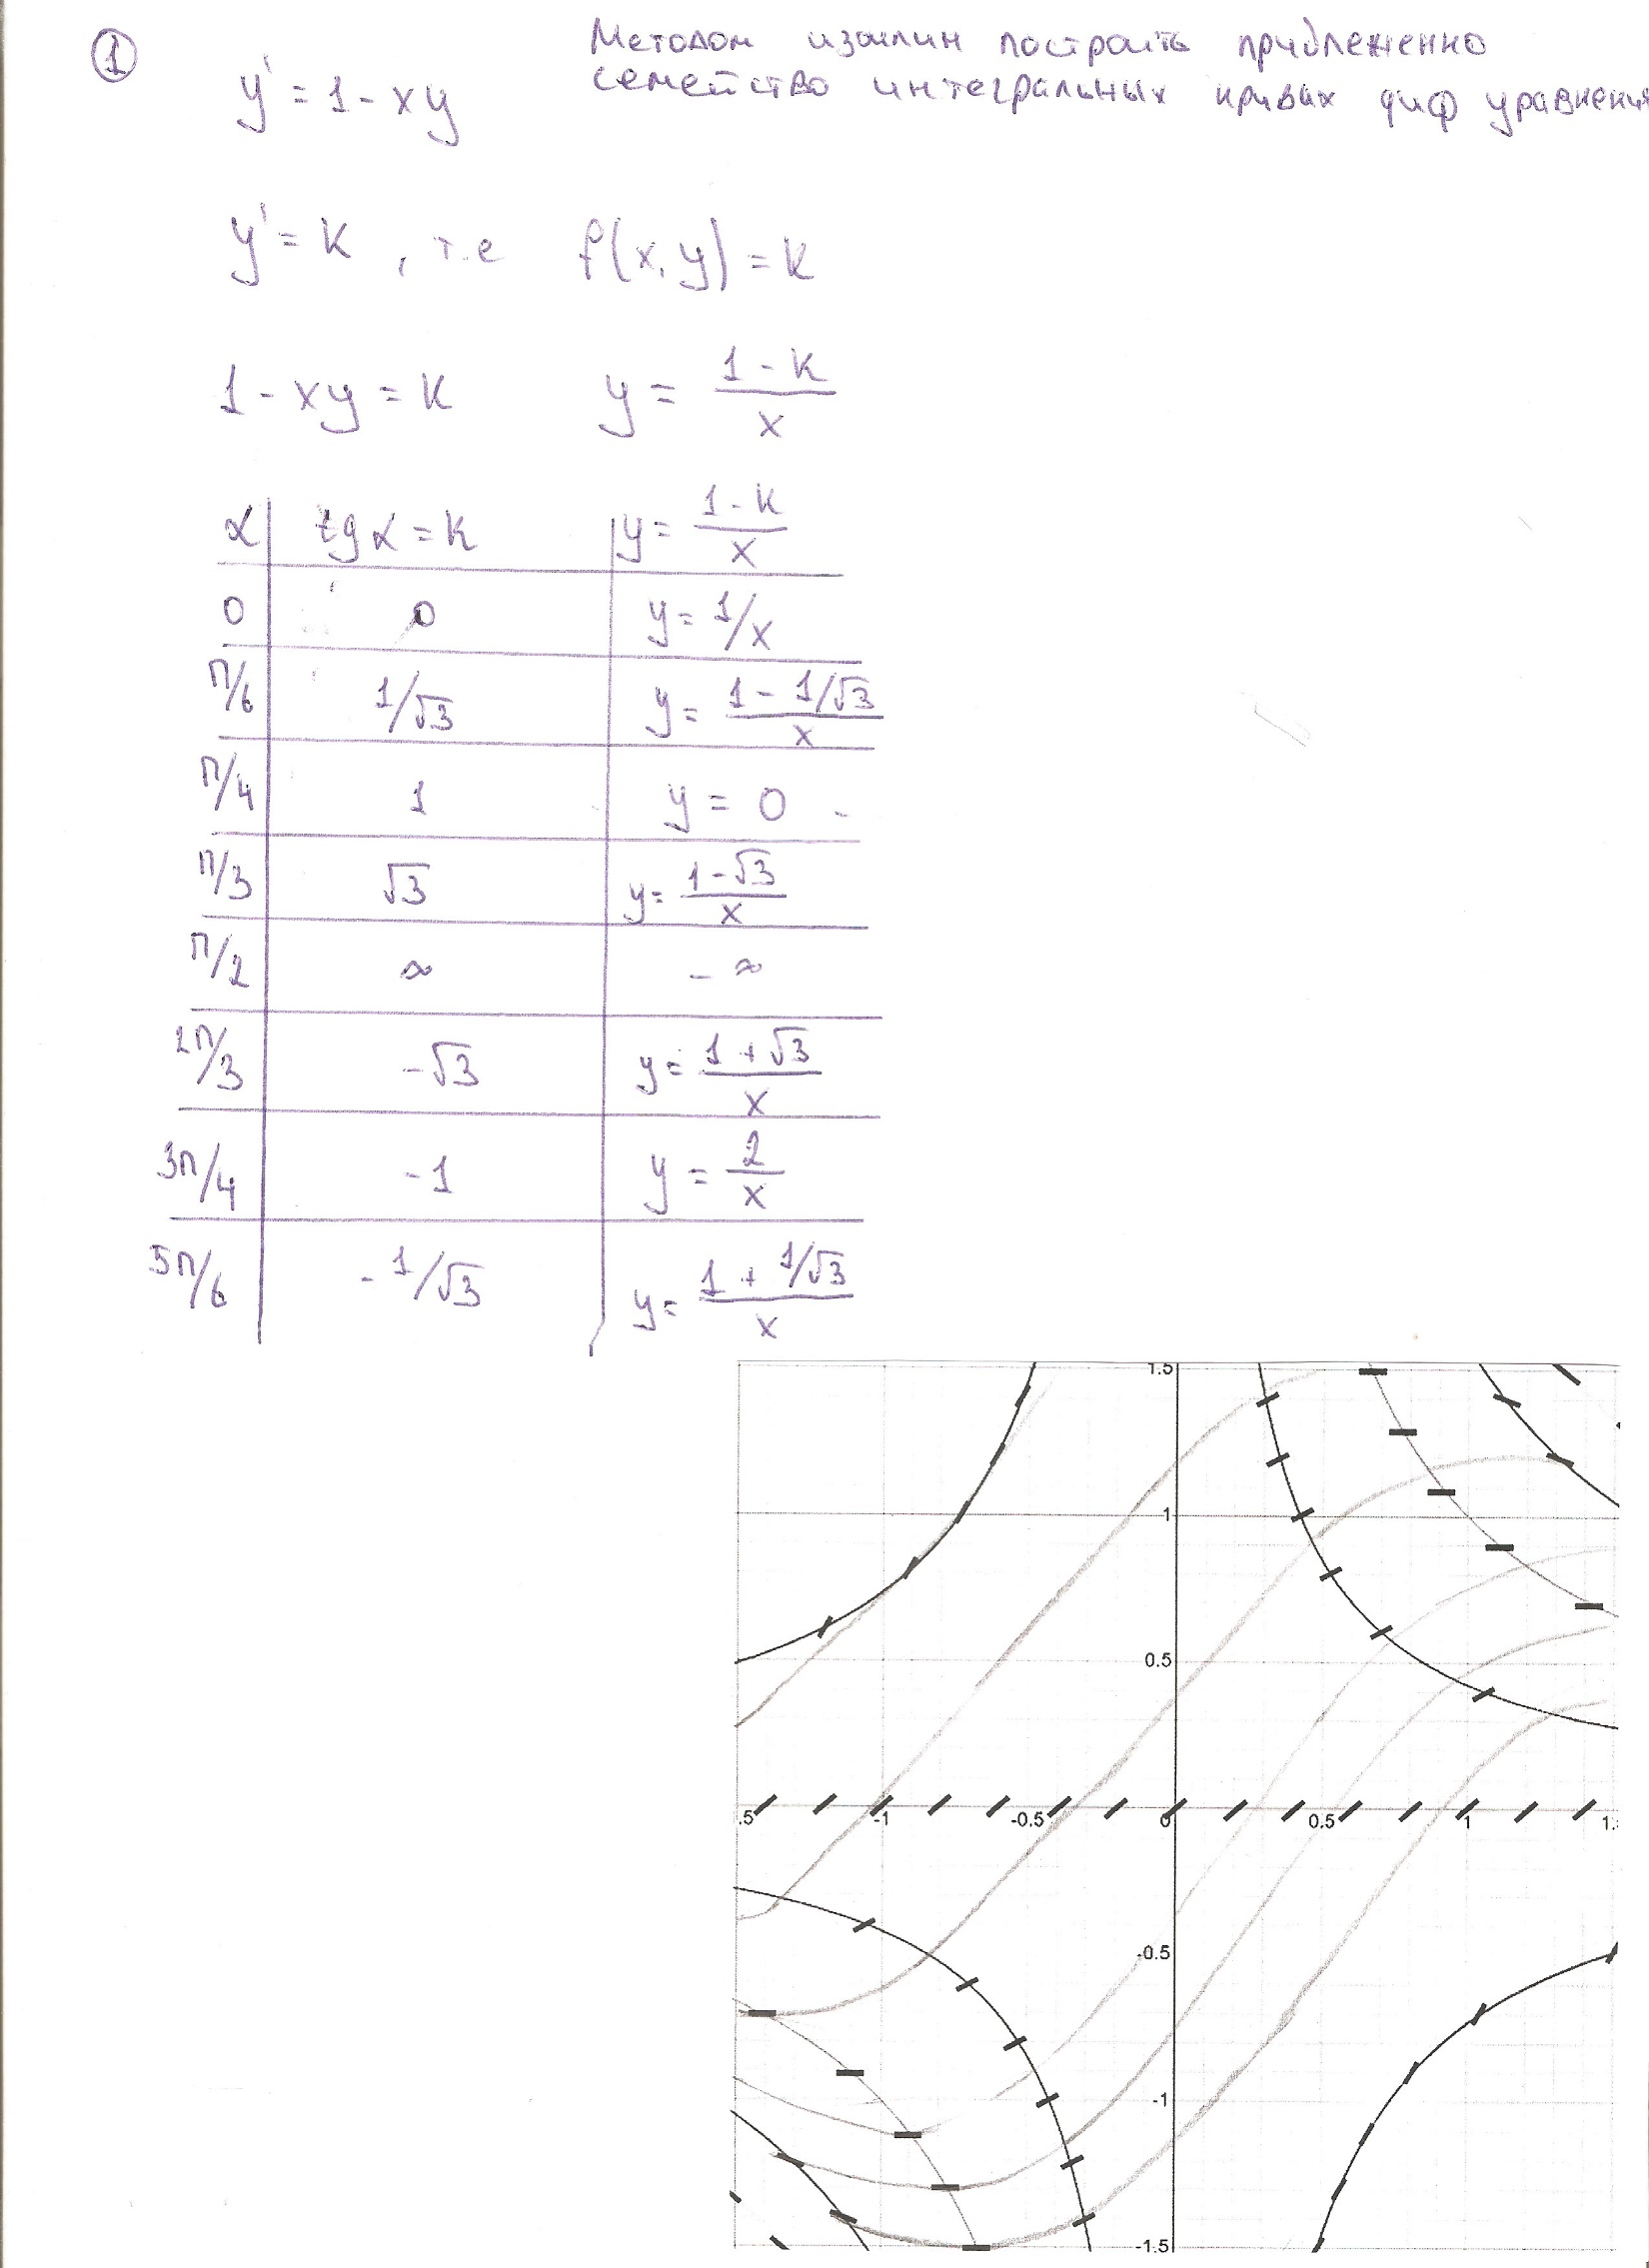 ① Методом изоклин построить приближенно
y' = 1 - xy семейство интегральных кривых диф уравнения
y' = k , т.е f(x, y) = k
1 - xy = k y = (1 - k)/x
α tg α = k y = (1 - k)/x
0 0 y = 1/x
π/6 1/√3 y = (1 - 1/√3)/x
π/4 1 y = 0
π/3 √3 y = (1 - √3)/x
π/2 ∞ - ∞
2π/3 -√3 y = (1 + √3)/x
3π/4 -1 y = 2/x
5π/6 - 1/√3 y = (1 + 1/√3)/x
1.5
1
0.5
.5 -1 -0.5 0 0.5 1 1.
-0.5
-1
-1.5